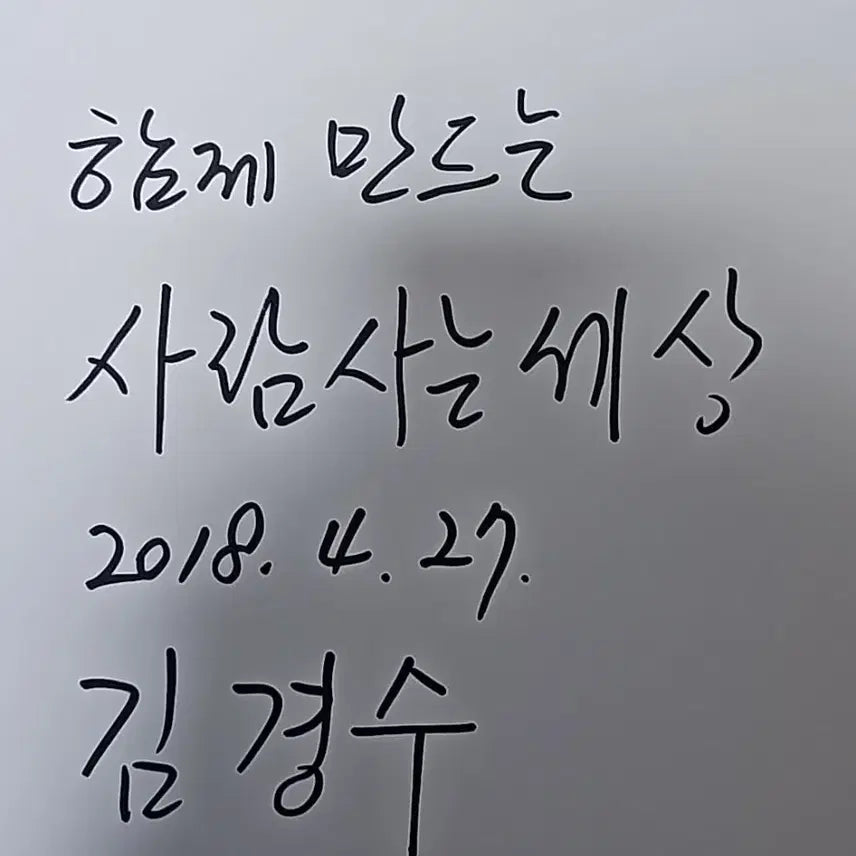 함께 만드는
사람사는세상
2018. 4. 27.
김경수